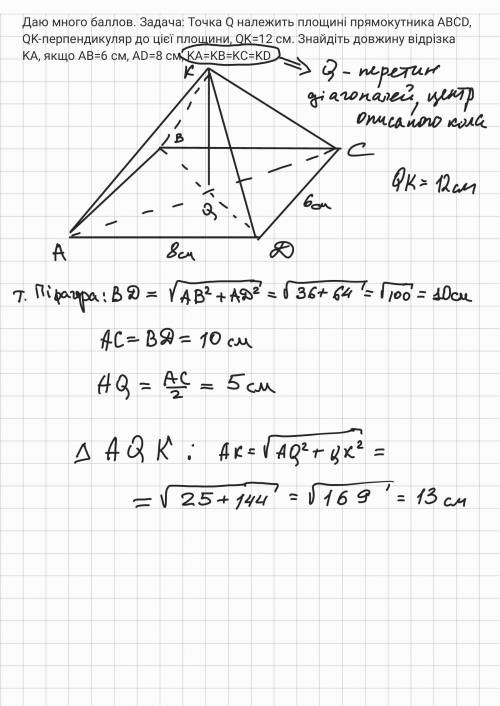 Даю много баллов. Задача: Точка Q належить площині прямокутника ABCD,
QK-перпендикуляр до цієї площини, QK=12 см. Знайдіть довжину відрізка
KA, якщо AB=6 см, AD=8 см, KA=KB=KC=KD
Q - перетин
діагоналей, центр
описаного кола
K
B
C
QK = 12 см
Q
6см
A
8см
D
т. Піфагора: BD = √AB² + AD² = √36+64 = √100 = 10см
AC = BD = 10 см
AQ = AC/2 = 5 см
Δ AQK: AK = √AQ² + QK² =
= √25 + 144 = √169 = 13 см